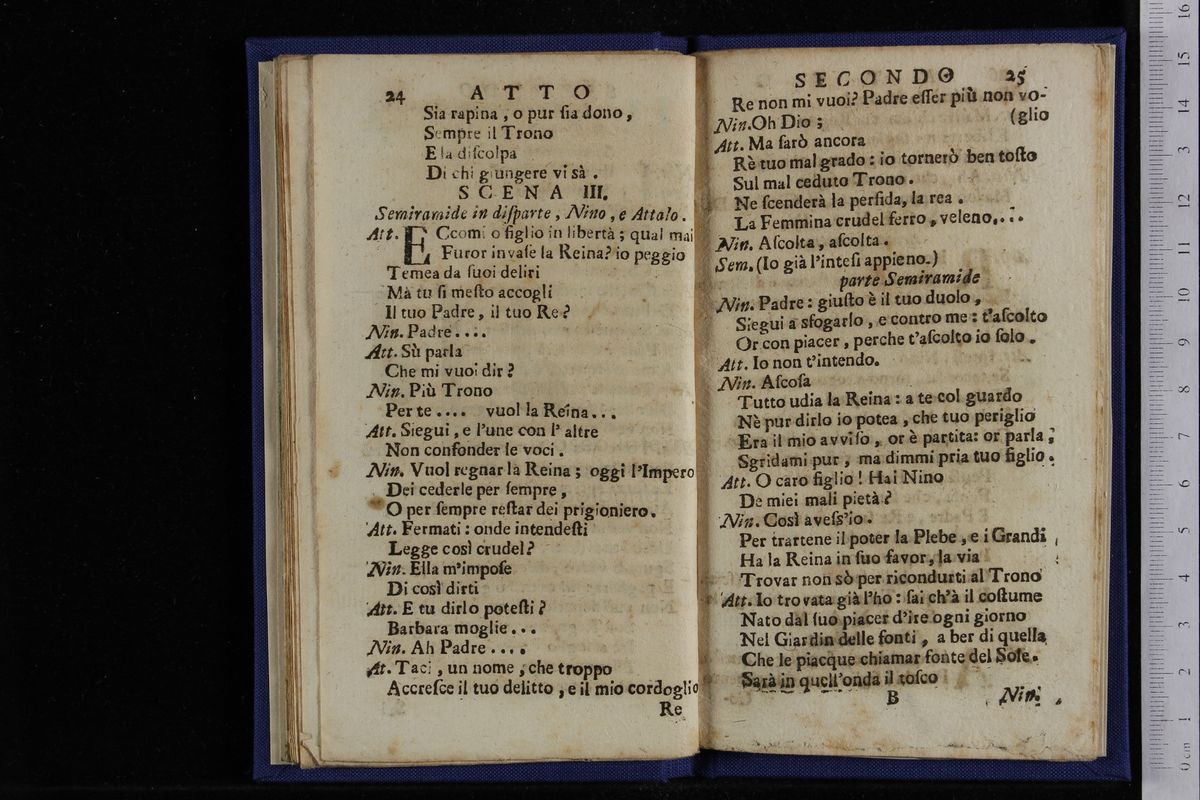 24 ATTO
Sia rapina, o pur ſia dono,
Sempre il Trono
E la diſcolpa
Di chi giungere vi sà.
SCENA III.
Semiramide in diſparte, Nino, e Attalo.
Att. ECcomi o figlio in libertà; qual mai
Furor invaſe la Reina? io peggio
Temea da ſuoi deliri
Mà tu ſi meſto accogli
Il tuo Padre, il tuo Re?
Nin. Padre....
Att. Sù parla
Che mi vuoi dir?
Nin. Più Trono
Per te.... vuol la Reina...
Att. Siegui, e l'une con l'altre
Non confonder le voci.
Nin. Vuol regnar la Reina; oggi l'Impero
Dei cederle per ſempre,
O per ſempre reſtar dei prigioniero.
Att. Fermati: onde intendeſti
Legge così crudel?
Nin. Ella m'impoſe
Di così dirti
Att. E tu dirlo poteſti?
Barbara moglie...
Nin. Ah Padre....
At. Taci, un nome, che troppo
Accreſce il tuo delitto, e il mio cordoglio
Re
SECONDO 25
Re non mi vuoi? Padre eſſer più non vo-
Nin. Oh Dio; (glio
Att. Ma ſarò ancora
Rè tuo mal grado: io tornerò ben toſto
Sul mal ceduto Trono.
Ne ſcenderà la perfida, la rea.
La Femmina crudel ferro, veleno,...
Nin. Aſcolta, aſcolta.
Sem. (Io già l'inteſi appieno.)
parte Semiramide
Nin. Padre: giuſto è il tuo duolo,
Siegui a sfogarlo, e contro me: t'aſcolto
Or con piacer, perche t'aſcolto io ſolo.
Att. Io non t'intendo.
Nin. Aſcoſa
Tutto udia la Reina: a te col guardo
Nè pur dirlo io potea, che tuo periglio
Era il mio avviſo, or è partita: or parla;
Sgridami pur, ma dimmi pria tuo figlio.
Att. O caro figlio! Hai Nino
De miei mali pietà?
Nin. Così aveſs'io.
Per trartene il poter la Plebe, e i Grandi
Ha la Reina in ſuo favor, la via
Trovar non sò per ricondurti al Trono
Att. Io trovata già l'ho: ſai ch'à il coſtume
Nato dal ſuo piacer d'ire ogni giorno
Nel Giardin delle fonti, a ber di quella
Che le piacque chiamar fonte del Sole.
Sarà in quell'onda il toſco
B Nin.